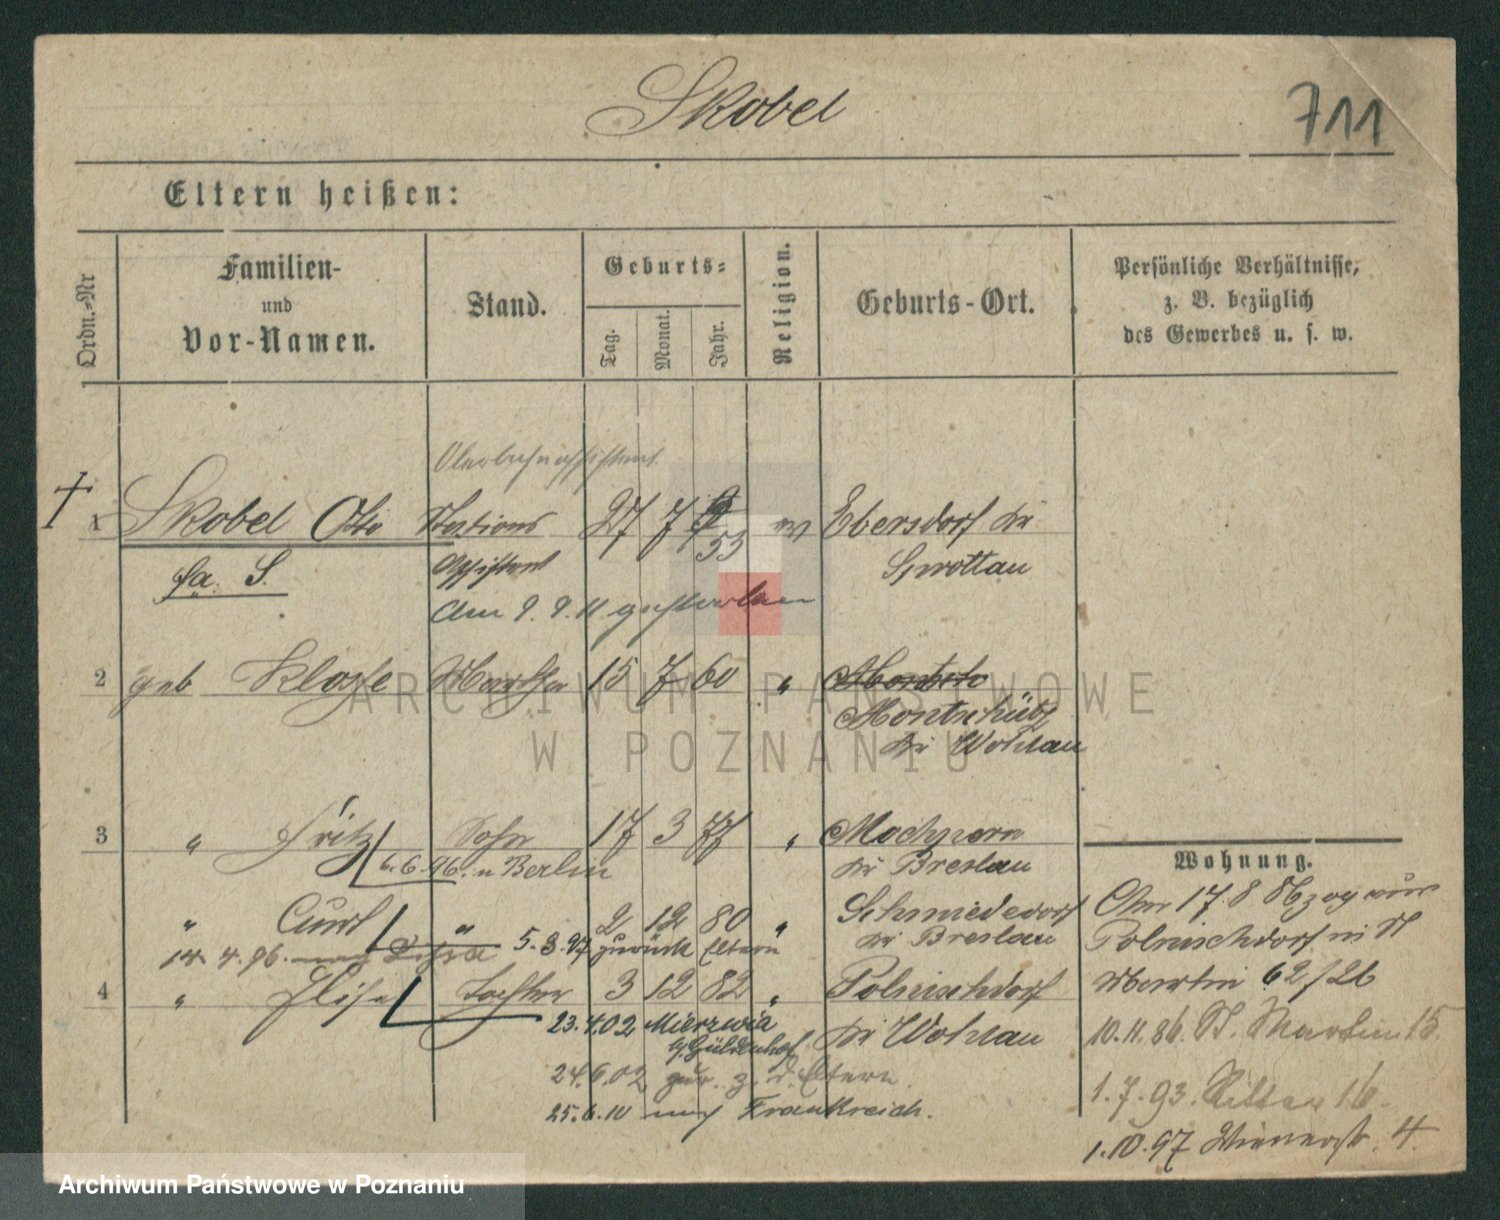 Skobel
711
Eltern heißen:
Ordn.-Nr
Familien-
und
Vor-Namen.
Stand.
Geburts-
Tag.
Monat.
Jahr.
Religion.
Geburts-Ort.
Persönliche Verhältnisse,
z. B. bezüglich
des Gewerbes u. s. w.
†
1 Skobel Otto Stations 27 7 53 Ebersdorf Kr
fa. S. Assistent
am 9. 9. 11 gestorben
2 geb Klose Martha 15 7 60 "
Montschütz
Kr Wohlau
3 " Fritz Sohn 17 3 77 " Mochpern
6.6.96. n Berlin Kr Breslau
" Curt " 2 12 80 " Schmiedeorf
14. 4. 96. nach Lissa 5.3.97 zurück Eltern Kr Breslau
4 " Elise Tochter 3 12 82 " Polnischdorf
23.4.02 Mierzwia Kr Wohlau
Güldenhof
24.6.02 zur. z. d. Eltern
25.6.10 nach Frankreich.
Wohnung.
17.8
Polnischdorf
Martin 62/26
10.11.86. St. Martin 15
1.7.93. Ritter 16.
1.10.97 Wienerstr. 4
ARCHIWUM PAŃSTWOWE
W POZNANIU
Archiwum Państwowe w Poznaniu